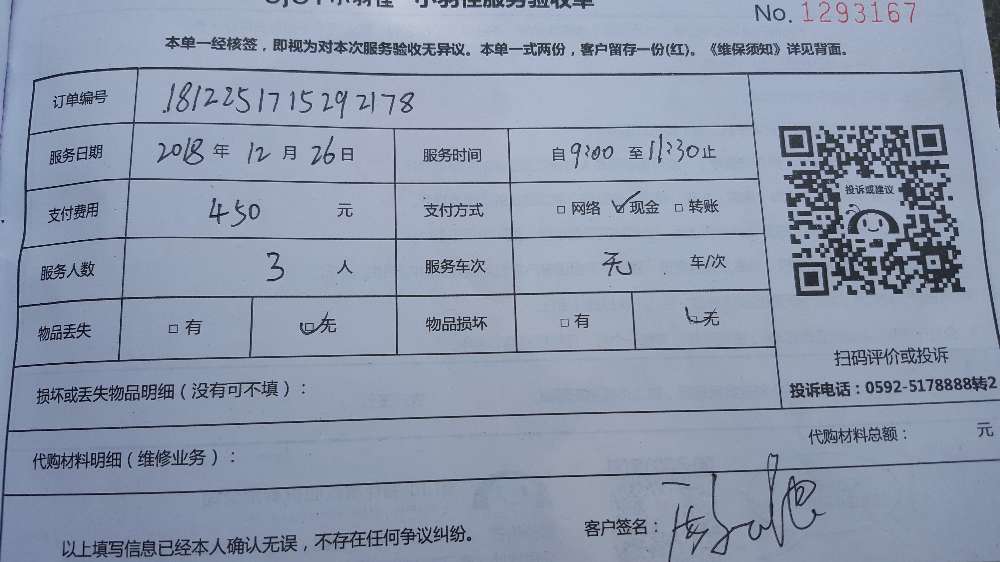 小羽佳服务验收单
No. 1293167
本单一经核签，即视为对本次服务验收无异议。本单一式两份，客户留存一份(红)。《维保须知》详见背面。
订单编号 1812251715292178
服务日期 2018 年 12 月 26 日 服务时间 自 9:00 至 11:30 止
支付费用 450 元 支付方式 □ 网络 ☑ 现金 □ 转账
服务人数 3 人 服务车次 无 车/次
物品丢失 □ 有 ☑ 无 物品损坏 □ 有 ☑ 无
投诉或建议
扫码评价或投诉
投诉电话：0592-5178888转2
损坏或丢失物品明细（没有可不填）：
代购材料明细（维修业务）：
代购材料总额： 元
以上填写信息已经本人确认无误，不存在任何争议纠纷。
客户签名：